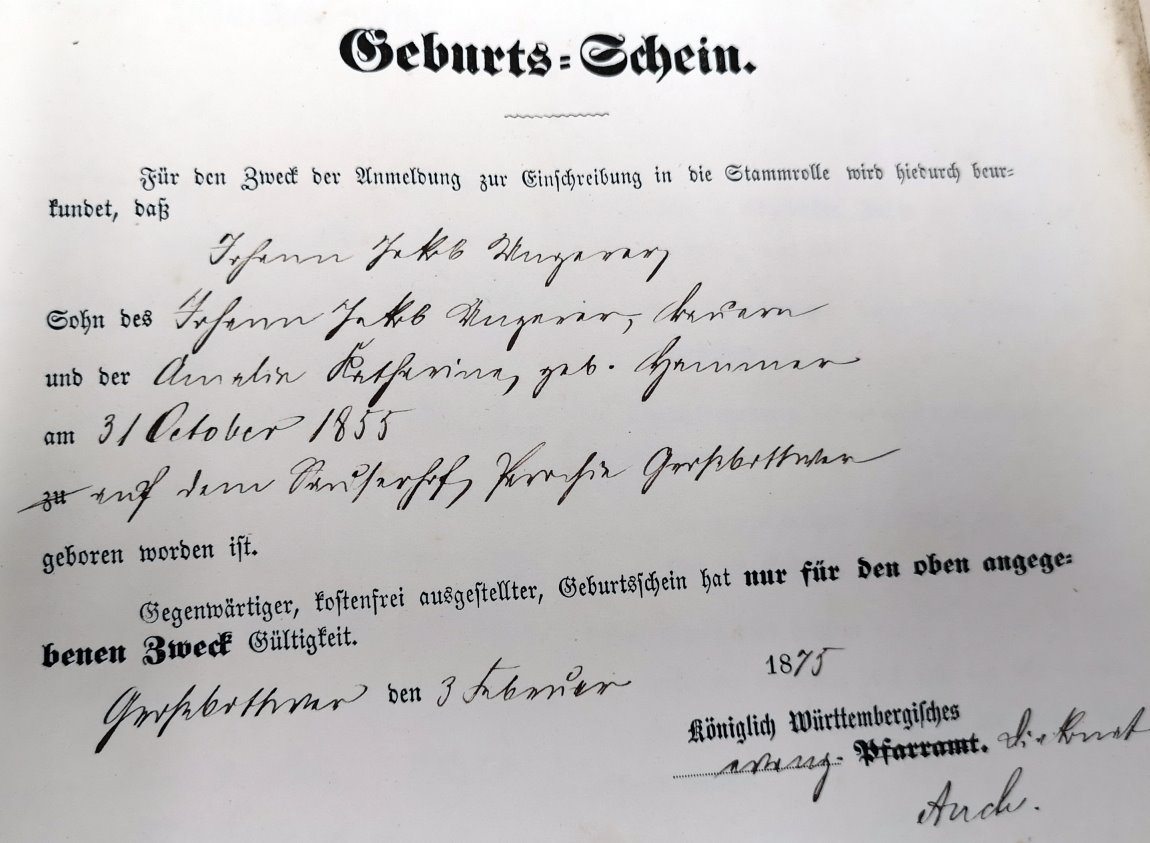 Geburts-Schein.
Für den Zweck der Anmeldung zur Einschreibung in die Stammrolle wird hiedurch beur-
kundet, daß
Johann Jakob Ungerer,
Sohn des Johann Jakob Ungerer, Bauern
und der Amalie Katharine, geb. Hammer
am 31 October 1855
zu auf dem Sauserhof, Parochie Großbottwar
geboren worden ist.
Gegenwärtiger, kostenfrei ausgestellter, Geburtsschein hat nur für den oben angege-
benen Zweck Gültigkeit.
Großbottwar den 3 Februar 1875
Königlich Württembergisches
evang. Pfarramt. Diakonat